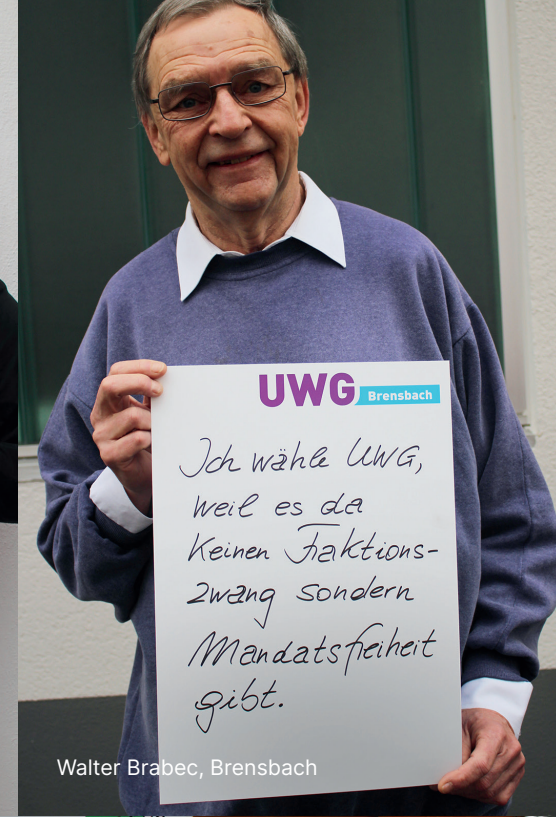 UWG Brensbach
Ich wähle UWG,
weil es da
keinen Fraktions-
zwang sondern
Mandatsfreiheit
gibt.
Walter Brabec, Brensbach